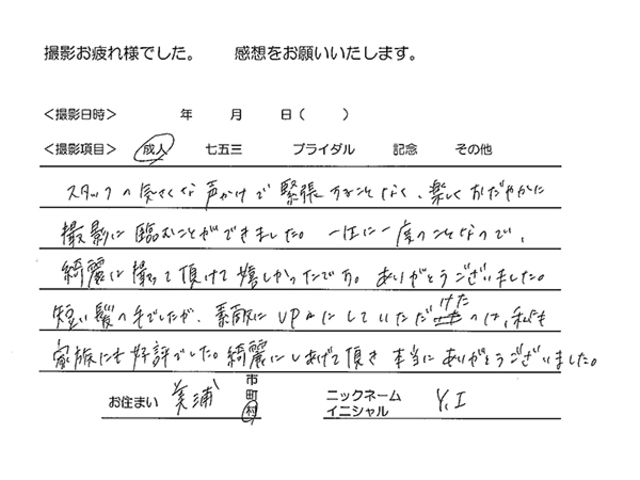 撮影お疲れ様でした。 感想をお願いいたします。
＜撮影日時＞ 年 月 日（ ）
＜撮影項目＞ 成人 七五三 ブライダル 記念 その他
スタッフの気さくな声かけで緊張することなく、楽しくおだやかに
撮影に臨むことができました。一生に一度のことなので、
綺麗に撮って頂けて嬉しかったです。ありがとうございました。
短い髪の毛でしたが、素敵にUPにしていただけたのは、私も
家族にも好評でした。綺麗にしあげて頂き本当にありがとうございました。
お住まい 美浦 市町村
ニックネーム イニシャル Y.I